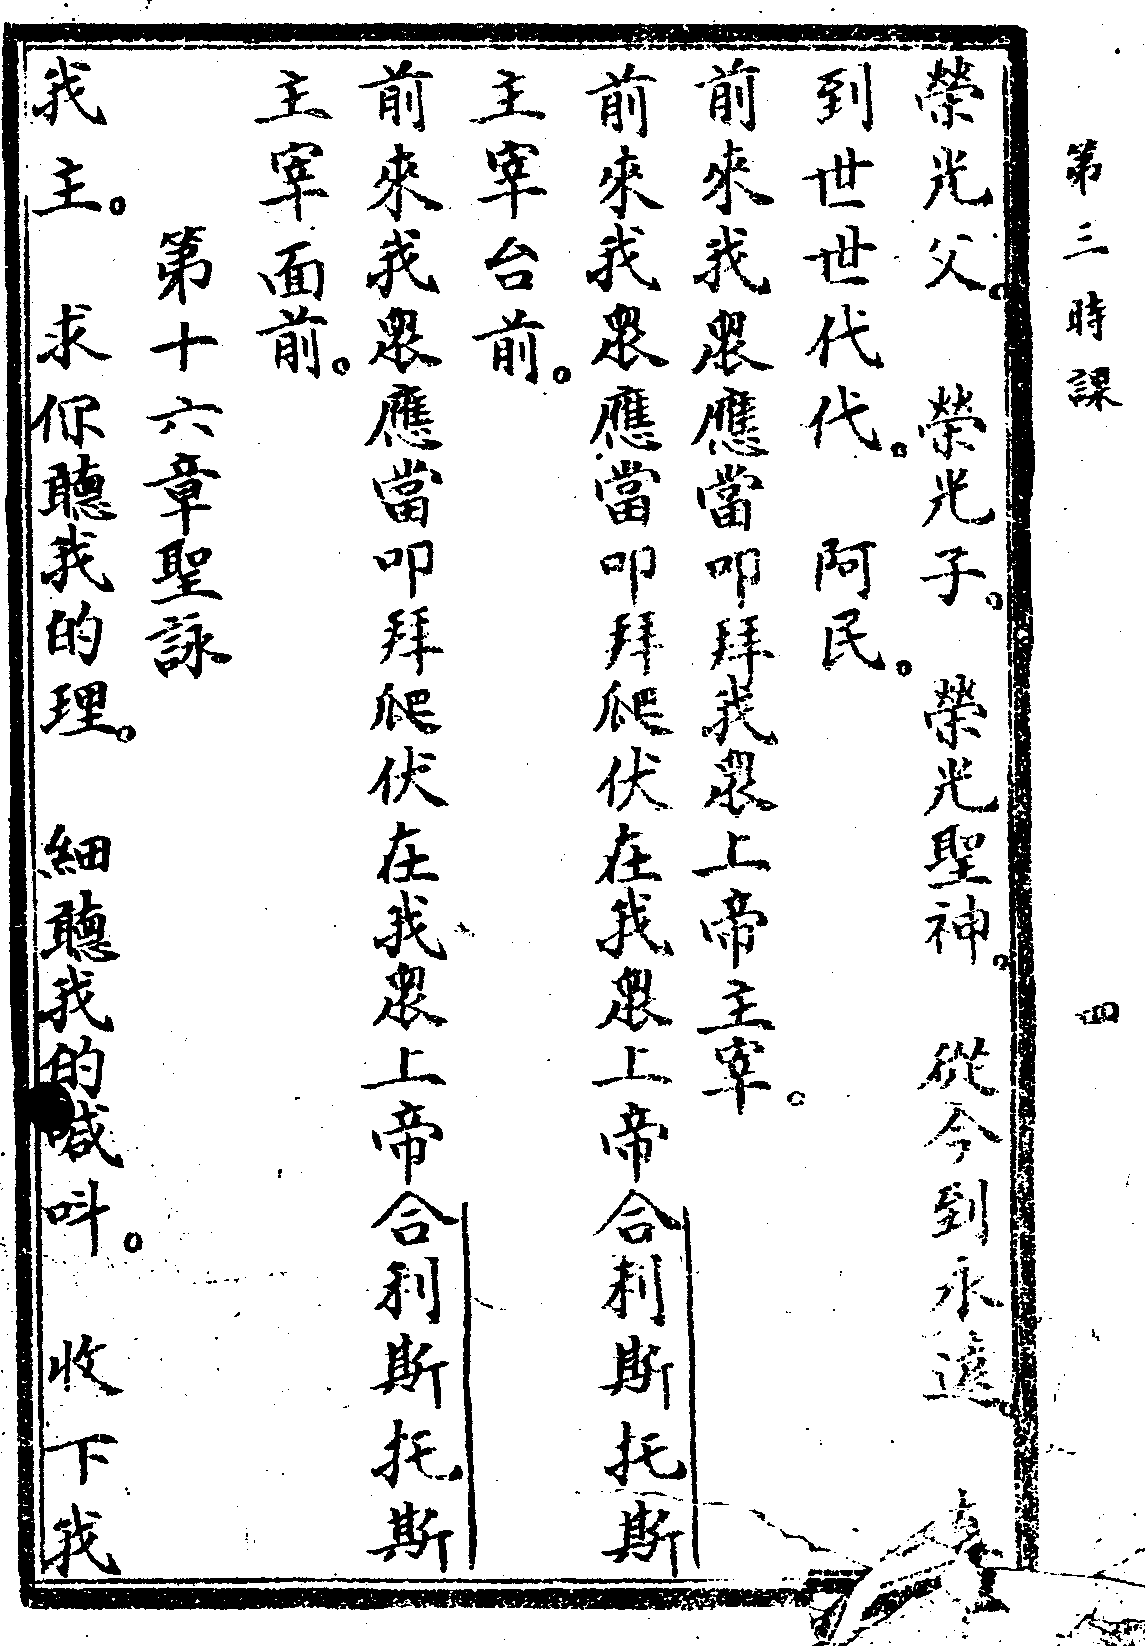 第三時課 四
榮光父。 榮光子。 榮光聖神。 從今到永遠。 直
到世世代代。 阿民。
前來我眾應當叩拜我眾上帝主宰。
前來我眾應當叩拜爬伏在我眾上帝合利斯托斯
主宰台前。
前來我眾應當叩拜爬伏在我眾上帝合利斯托斯
主宰面前。
第十六章聖詠
我主。 求你聽我的理。 細聽我的喊呌。 收下我